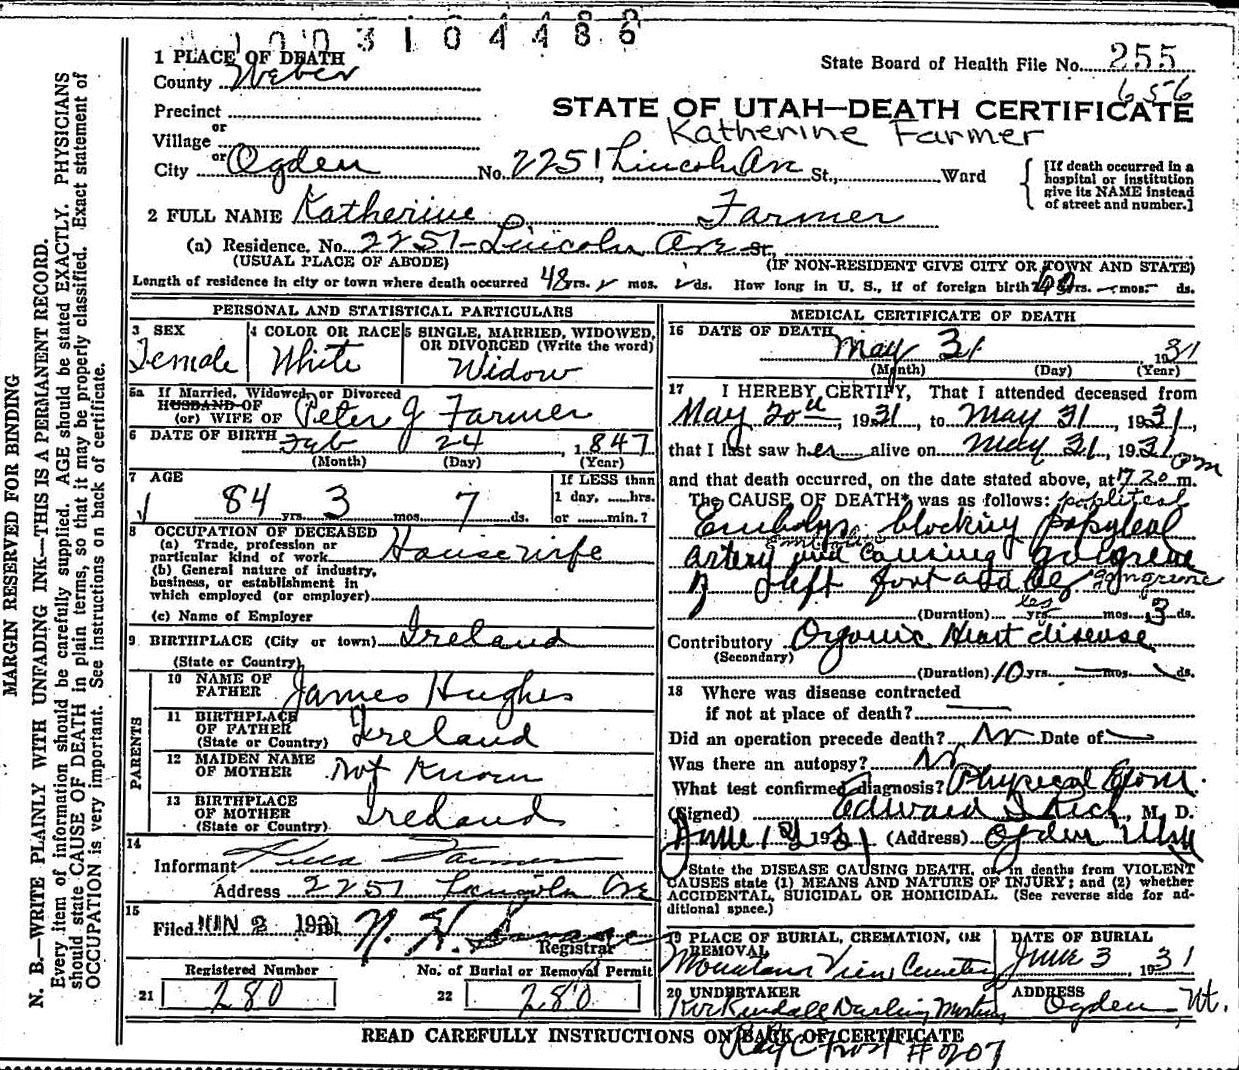 1003104486
1 PLACE OF DEATH
County Weber
State Board of Health File No. 255
656
Precinct
STATE OF UTAH—DEATH CERTIFICATE
or
Village
Katherine Farmer
or
City Ogden No. 2251 Lincoln Ave St., Ward
[If death occurred in a
hospital or institution
give its NAME instead
of street and number.]
2 FULL NAME Katherine Farmer
(a) Residence. No. 2251 Lincoln Ave St.
(USUAL PLACE OF ABODE) (IF NON-RESIDENT GIVE CITY OR TOWN AND STATE)
Length of residence in city or town where death occurred 48 yrs. mos. ds. How long in U. S., if of foreign birth? yrs. — mos. ds.
PERSONAL AND STATISTICAL PARTICULARS
3 SEX
Female
4 COLOR OR RACE
White
5 SINGLE, MARRIED, WIDOWED,
OR DIVORCED (Write the word)
Widow
5a If Married, Widowed, or Divorced
HUSBAND OF
(or) WIFE OF Peter J Farmer
6 DATE OF BIRTH Feb 24, 1847
(Month) (Day) (Year)
7 AGE
84 yrs. 3 mos. 7 ds.
If LESS than
1 day, hrs.
or min.?
8 OCCUPATION OF DECEASED
(a) Trade, profession or
particular kind of work Housewife
(b) General nature of industry,
business, or establishment in
which employed (or employer)
(c) Name of Employer
9 BIRTHPLACE (City or town) Ireland
(State or Country)
PARENTS
10 NAME OF
FATHER James Hughes
11 BIRTHPLACE
OF FATHER
(State or Country) Ireland
12 MAIDEN NAME
OF MOTHER Not Known
13 BIRTHPLACE
OF MOTHER
(State or Country) Ireland
14
Informant Farmer
Address 2251 Lincoln Ave
15
Filed JUN 2 1931 N. H.
Registrar
Registered Number
21 280
No. of Burial or Removal Permit
22 280
MEDICAL CERTIFICATE OF DEATH
16 DATE OF DEATH May 31 1931
(Month) (Day) (Year)
17 I HEREBY CERTIFY, That I attended deceased from
May 20th, 1931, to May 31, 1931,
that I last saw her alive on May 31, 1931
and that death occurred, on the date stated above, at 720 pm m.
The CAUSE OF DEATH* was as follows: popliteal
Embolus blocking
artery and causing gangrene
of left foot and leg gangrene
leg
(Duration) yrs. mos. 3 ds.
Contributory Organic Heart disease
(Secondary)
(Duration) 10 yrs. — mos. ds.
18 Where was disease contracted
if not at place of death? —
Did an operation precede death? No Date of —
Was there an autopsy? No
What test confirmed diagnosis? Physical Exam.
(Signed) Edward I Rich, M. D.
June 1931 (Address) Ogden Utah
*State the DISEASE CAUSING DEATH, or, in deaths from VIOLENT
CAUSES state (1) MEANS AND NATURE OF INJURY; and (2) whether
ACCIDENTAL, SUICIDAL OR HOMICIDAL. (See reverse side for ad-
ditional space.)
19 PLACE OF BURIAL, CREMATION, OR
REMOVAL
Mountain View Cemetery
DATE OF BURIAL
June 3, 1931
20 UNDERTAKER
Kirkendall Darling Mortuary
ADDRESS
Ogden, Ut.
READ CAREFULLY INSTRUCTIONS ON BACK OF CERTIFICATE
Ray C Frost #207
MARGIN RESERVED FOR BINDING
N. B.—WRITE PLAINLY WITH UNFADING INK—THIS IS A PERMANENT RECORD.
Every item of information should be carefully supplied. AGE should be stated EXACTLY. PHYSICIANS
should state CAUSE OF DEATH in plain terms, so that it may be properly classified. Exact statement of
OCCUPATION is very important. See instructions on back of certificate.